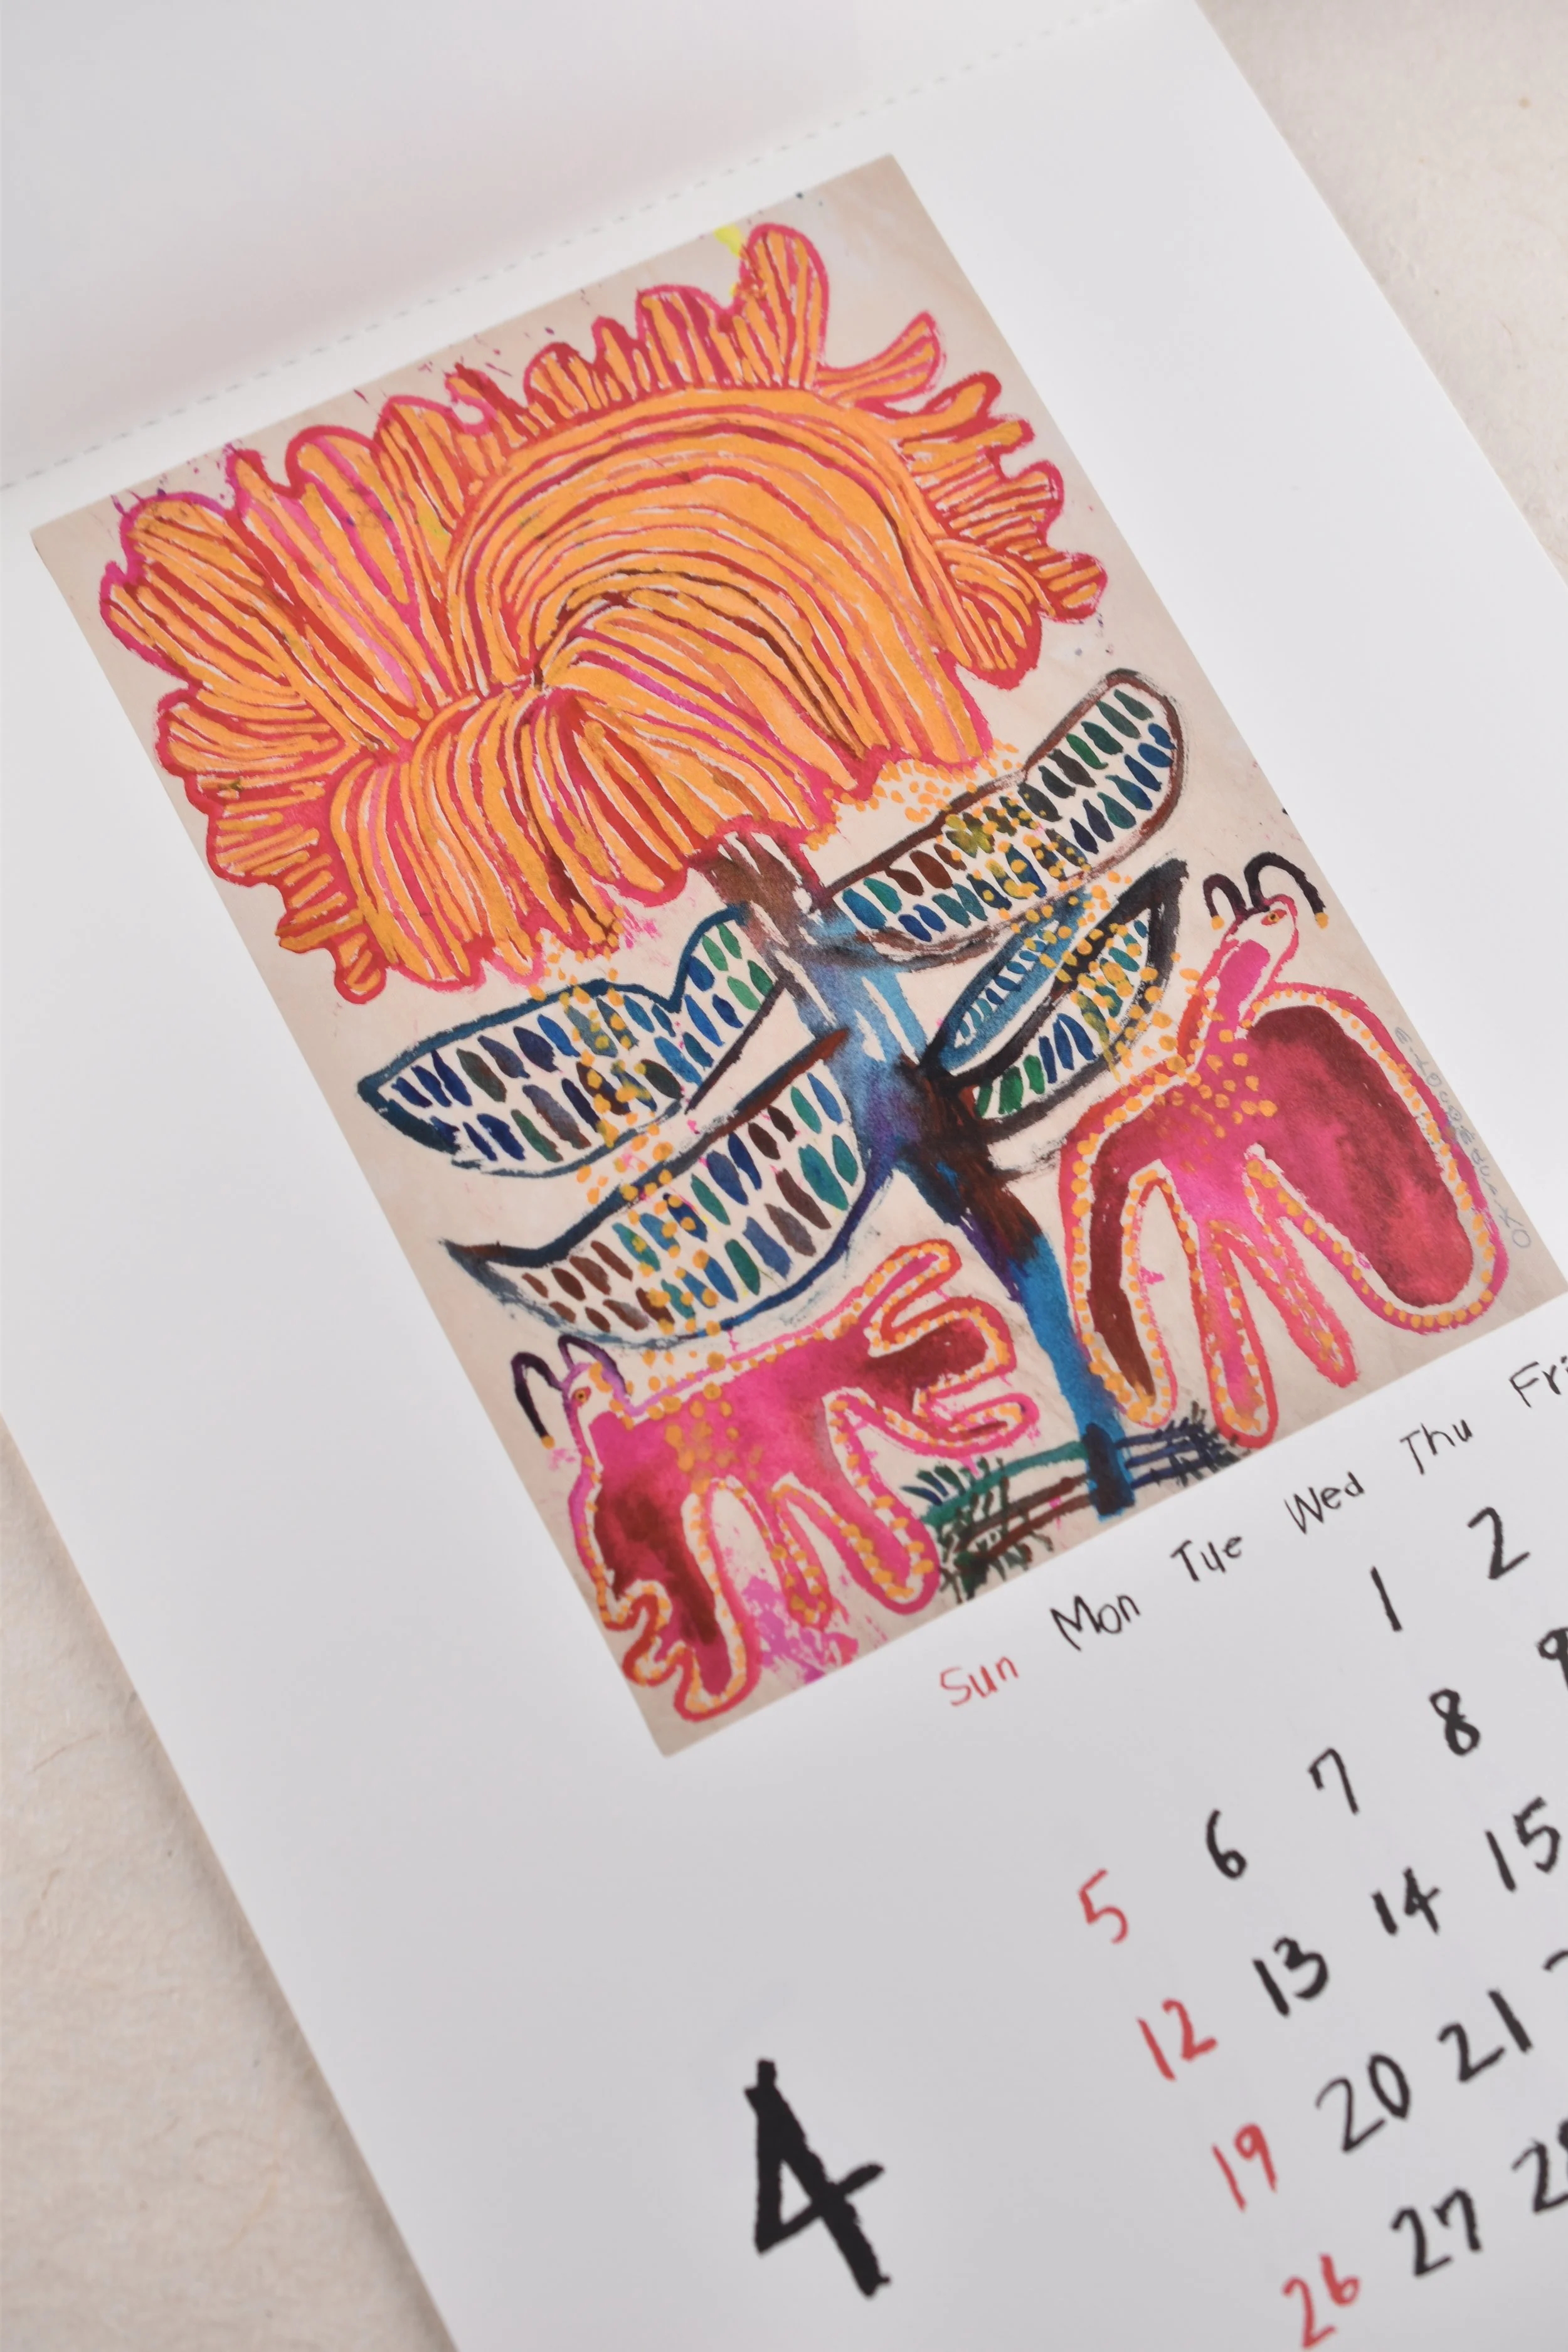 Sun Mon Tue Wed Thu
1 2
5 6 7 8 9
12 13 14 15
19 20 21
26 27
4